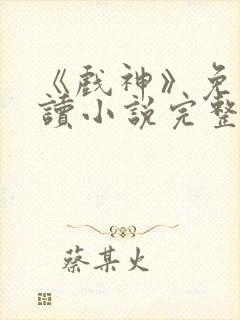 《戲神》免
讀小說完整
蔡某火